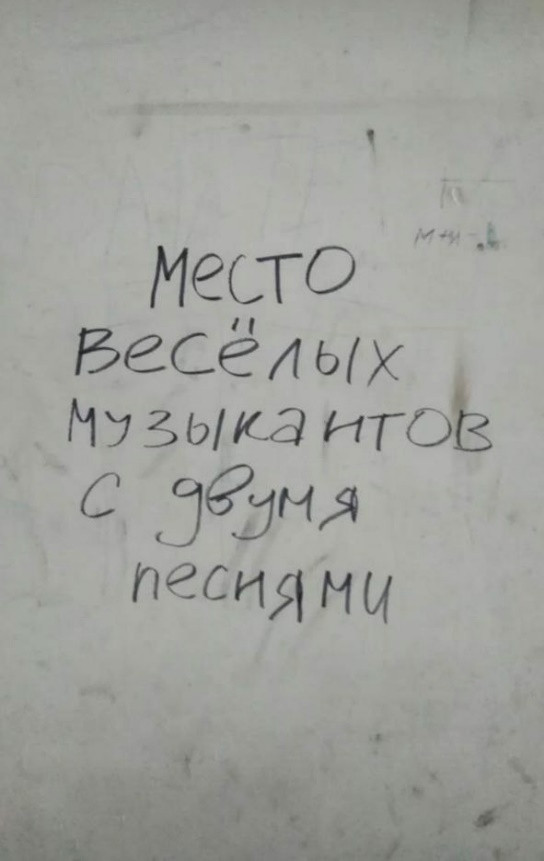 Место
весёлых
музыкантов
с двумя
песнями